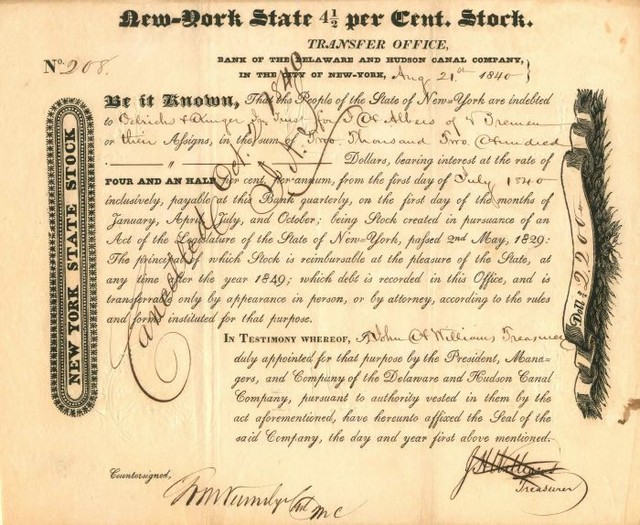 New-York State 4½ per Cent. Stock.
TRANSFER OFFICE,
BANK OF THE DELAWARE AND HUDSON CANAL COMPANY,
No. 208.
IN THE CITY OF NEW-YORK, Aug 21st 1840
Be it Known, That the People of the State of New-York are indebted
to Oelrichs & Kruger In Trust for J H Albers of Bremen
or their Assigns, in the sum of Two Thousand Two Hundred
" Dollars, bearing interest at the rate of
FOUR AND AN HALF per cent. per annum, from the first day of July 1840
inclusively, payable at this Bank quarterly, on the first day of the months of
January, April, July, and October; being Stock created in pursuance of an
Act of the Legislature of the State of New-York, passed 2nd May, 1829:
The principal of which Stock is reimbursable at the pleasure of the State, at
any time after the year 1849; which debt is recorded in this Office, and is
transferrable only by appearance in person, or by attorney, according to the rules
and forms instituted for that purpose.
Cancelled Oct. 1840
NEW YORK STATE STOCK
Dolls. 2200
IN TESTIMONY WHEREOF, I John H Williams Treasurer
duly appointed for that purpose by the President, Mana-
gers, and Company of the Delaware and Hudson Canal
Company, pursuant to authority vested in them by the
act aforementioned, have hereunto affixed the Seal of the
said Company, the day and year first above mentioned.
Countersigned,
J H Williams
Treasurer